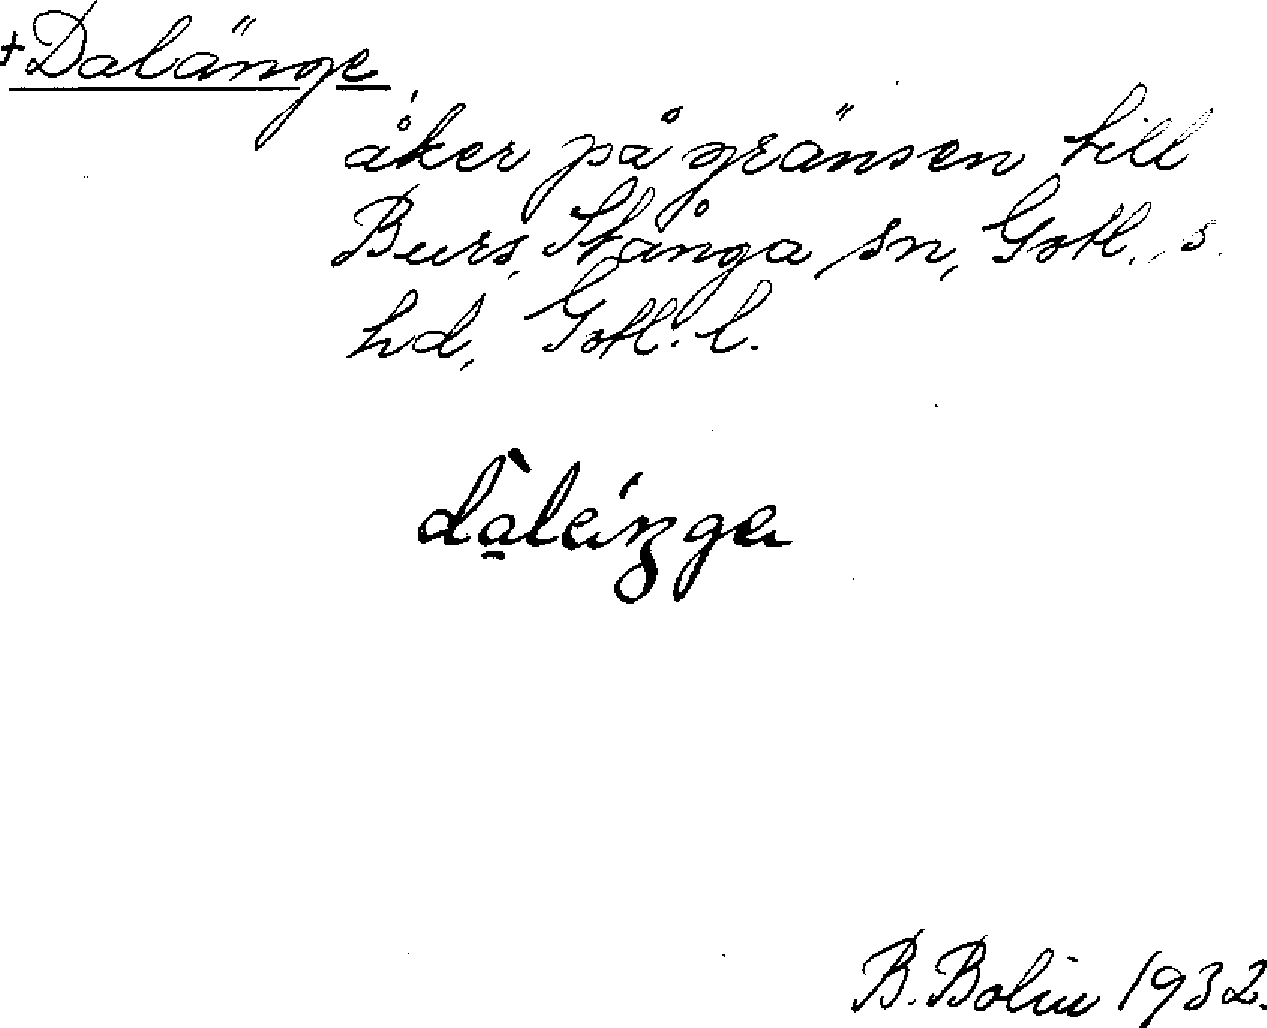 +Dalänge,
åker på gränsen till
Burs, Stånga sn, Gotl. s.
hd, Gotl. l.
dàlä́ŋgα
B. Bolin 1932.